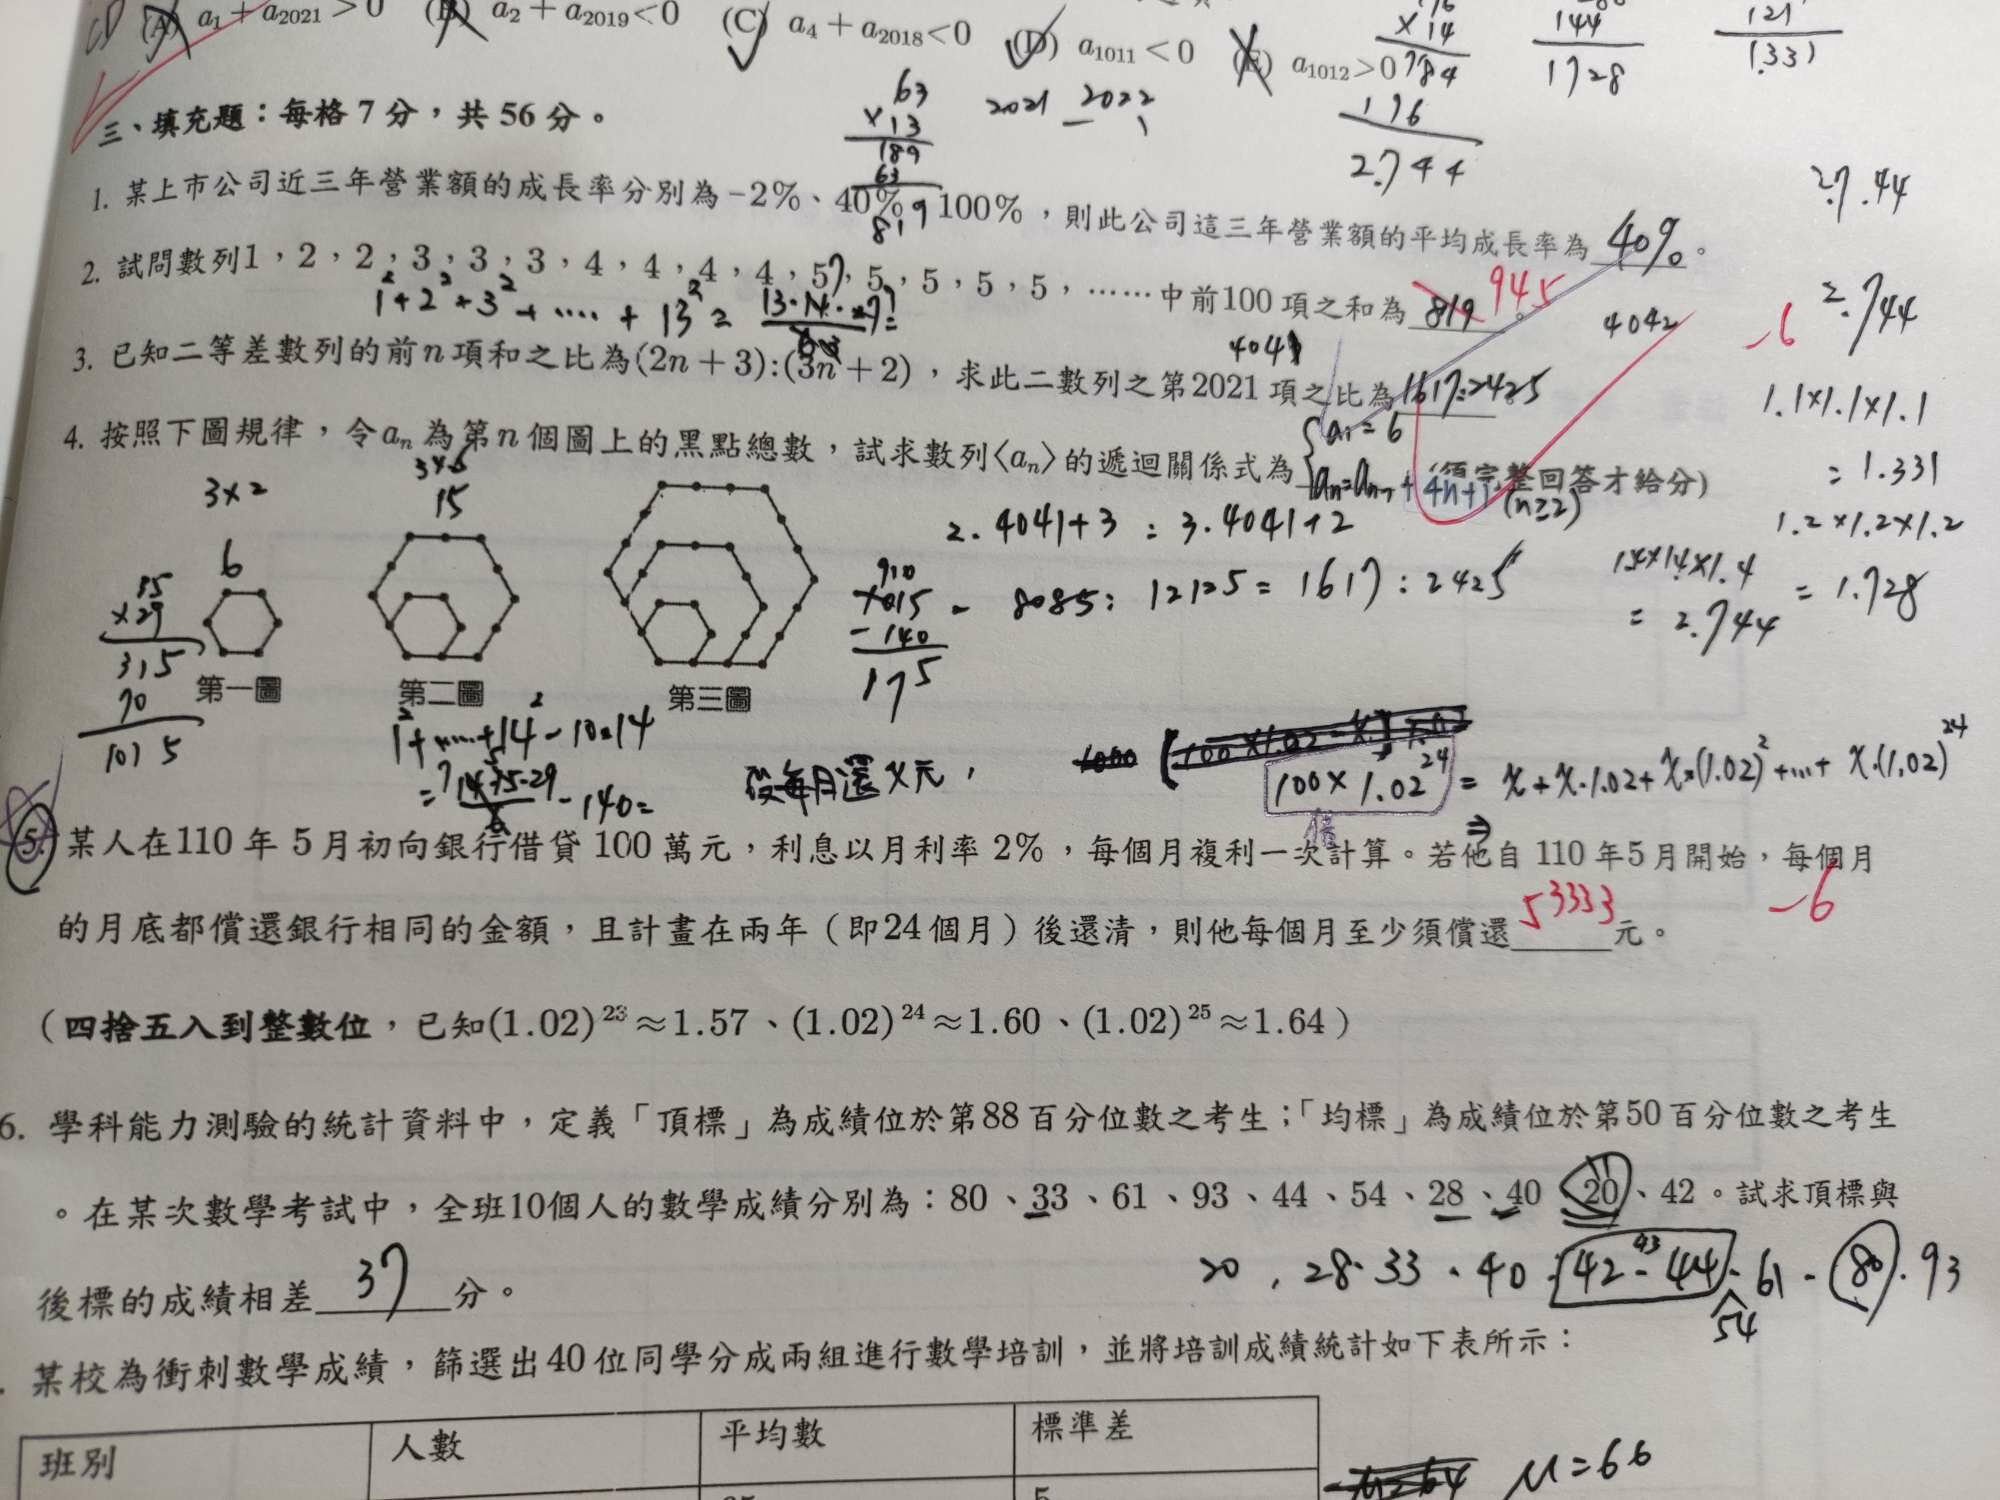 (A) a₁ + a₂₀₂₁ > 0 (B) a₂ + a₂₀₁₉ < 0 (C) a₄ + a₂₀₁₈ < 0 (D) a₁₀₁₁ < 0 (E) a₁₀₁₂ > 0
×14
784
196
2.744
144
1728
121
1.331
三、填充題：每格 7 分，共 56 分。
63
×13
189
63
819
2021 2022
1. 某上市公司近三年營業額的成長率分別為 -2%、40%、100%，則此公司這三年營業額的平均成長率為 40% 。
27.44
2. 試問數列1，2，2，3，3，3，4，4，4，4，5，5，5，5，5，……中前100 項之和為 819 945
1² + 2² + 3² + .... + 13² =
4042
-6
2.744
3. 已知二等差數列的前n項和之比為(2n + 3):(3n + 2)，求此二數列之第2021 項之比為 1617:2425
4041
1.1×1.1×1.1
= 1.331
4. 按照下圖規律，令aₙ為第n個圖上的黑點總數，試求數列⟨aₙ⟩的遞迴關係式為 (須完整回答才給分)
a₁ = 6
aₙ = aₙ₋₁ + 4n+1 (n≥2)
3×2
3×5
15
6
2·4041+3 : 3·4041+2
= 8085 : 12125 = 1617 : 2425
1.2×1.2×1.2
= 1.728
1.4×1.4×1.4
= 2.744
×29
315
70
1015
910
1015
- 140
175
第一圖
第二圖
第三圖
1²+....+14² - 10·14
- 140 =
設每月還 x 元，
100 × 1.02²⁴ = x + x·1.02 + x·(1.02)² + ... + x·(1.02)²⁴
5. 某人在110 年 5 月初向銀行借貸 100 萬元，利息以月利率 2%，每個月複利一次計算。若他自 110 年5 月開始，每個月
的月底都償還銀行相同的金額，且計畫在兩年（即24個月）後還清，則他每個月至少須償還 53333 元。
-6
（四捨五入到整數位，已知(1.02)²³≈1.57、(1.02)²⁴≈1.60、(1.02)²⁵≈1.64）
6. 學科能力測驗的統計資料中，定義「頂標」為成績位於第88百分位數之考生；「均標」為成績位於第50百分位數之考生
。在某次數學考試中，全班10個人的數學成績分別為：80、33、61、93、44、54、28、40、20、42。試求頂標與
後標的成績相差 37 分。
20 . 28 . 33 . 40 . 42 43 44 . 61 . 80 . 93
54
. 某校為衝刺數學成績，篩選出40位同學分成兩組進行數學培訓，並將培訓成績統計如下表所示：
班別 人數 平均數 標準差
5
μ=66